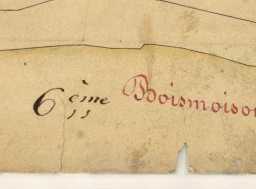 6ème Boismoiso